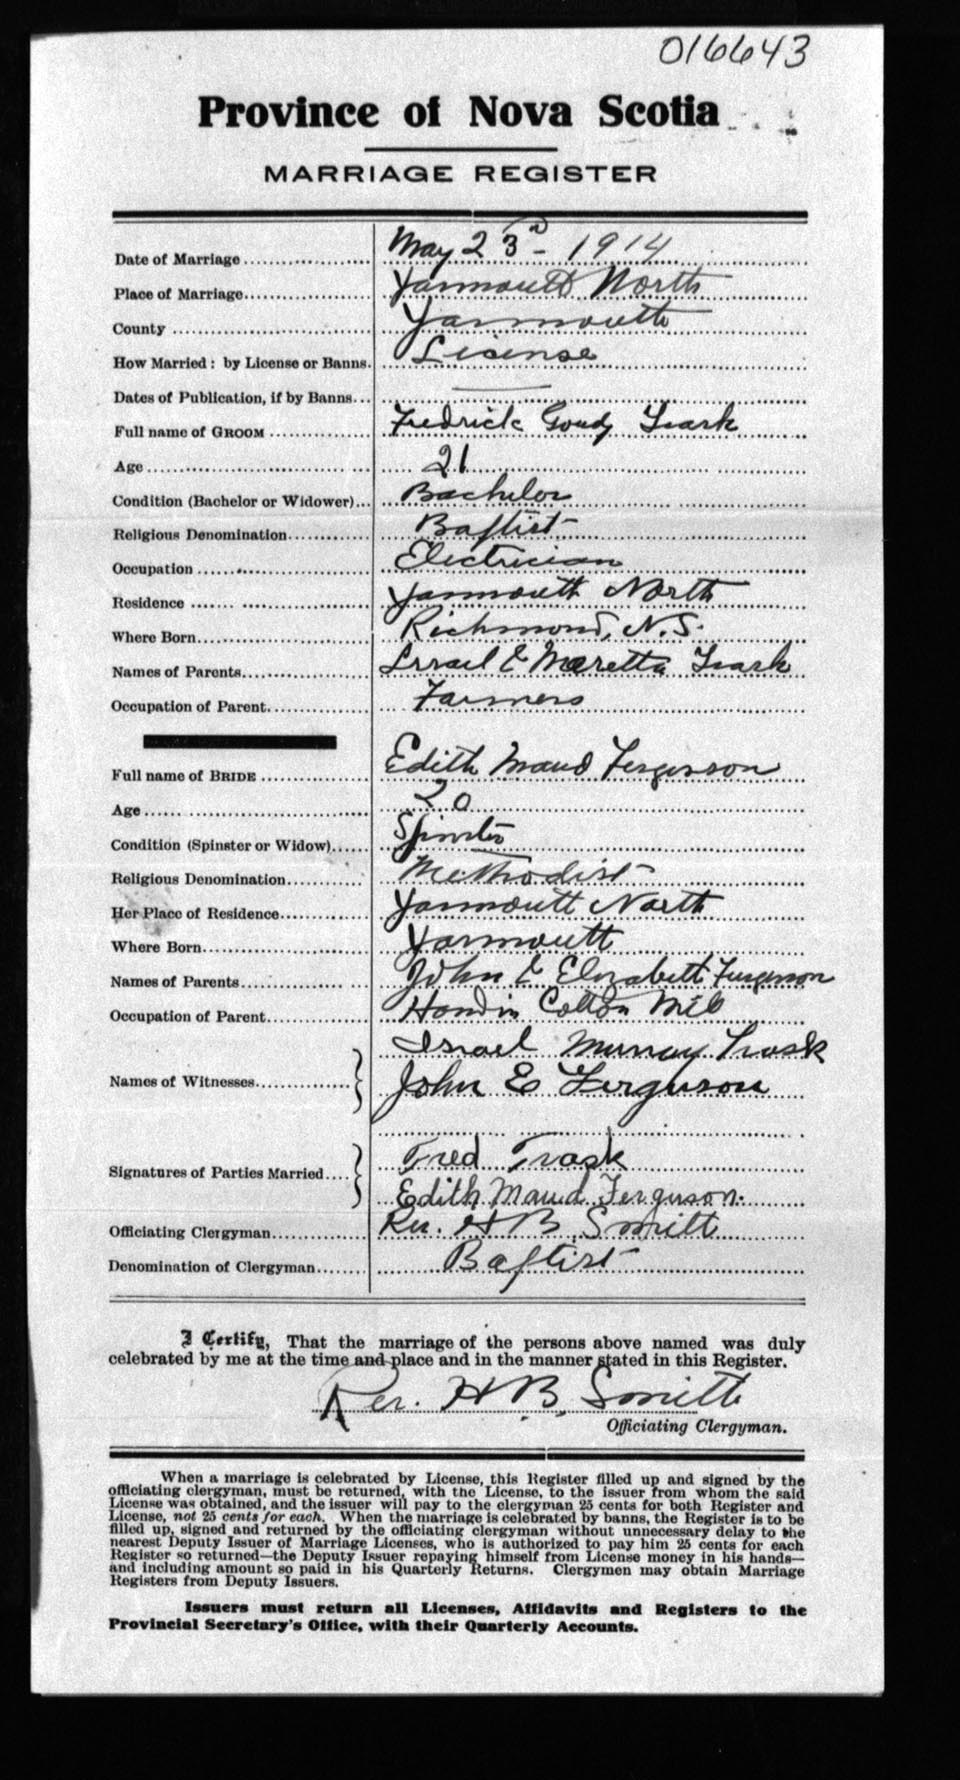 016643
Province of Nova Scotia
MARRIAGE REGISTER
Date of Marriage May 23rd - 1914
Place of Marriage Yarmouth North
County Yarmouth
How Married: by License or Banns. License
Dates of Publication, if by Banns
Full name of GROOM Fredrick Goudy Trask
Age 21
Condition (Bachelor or Widower) Bachelor
Religious Denomination Baptist
Occupation Electrician
Residence Yarmouth North
Where Born Richmond, N.S.
Names of Parents Israel & Maretta Trask
Occupation of Parent Farmers
Full name of BRIDE Edith Maud Fergusson
Age 20
Condition (Spinster or Widow) Spinster
Religious Denomination Methodist
Her Place of Residence Yarmouth North
Where Born Yarmouth
Names of Parents John & Elizabeth Ferguson
Occupation of Parent Hand in Cotton Mill
Israel Murray Trask
Names of Witnesses John E Ferguson
Fred Trask
Signatures of Parties Married
Edith Maud Ferguson.
Officiating Clergyman Rev. H B Smith
Denomination of Clergyman Baptist
I Certify, That the marriage of the persons above named was duly
celebrated by me at the time and place and in the manner stated in this Register.
Rev. H. B. Smith
Officiating Clergyman.
When a marriage is celebrated by License, this Register filled up and signed by the
officiating clergyman, must be returned, with the License, to the issuer from whom the said
License was obtained, and the issuer will pay to the clergyman 25 cents for both Register and
License, not 25 cents for each. When the marriage is celebrated by banns, the Register is to be
filled up, signed and returned by the officiating clergyman without unnecessary delay to the
nearest Deputy Issuer of Marriage Licenses, who is authorized to pay him 25 cents for each
Register so returned—the Deputy Issuer repaying himself from License money in his hands—
and including amount so paid in his Quarterly Returns. Clergymen may obtain Marriage
Registers from Deputy Issuers.
Issuers must return all Licenses, Affidavits and Registers to the
Provincial Secretary's Office, with their Quarterly Accounts.